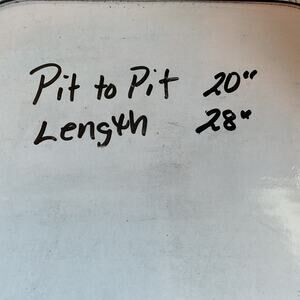 Pit to Pit 20"
Length 28"